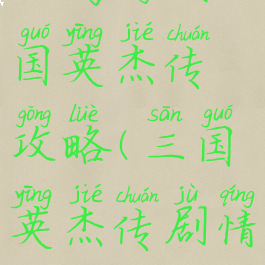 guó yīng jié chuán
国英杰传
gōng lüè sān guó
攻略(三国
yīng jié chuán jù qíng
英杰传剧情